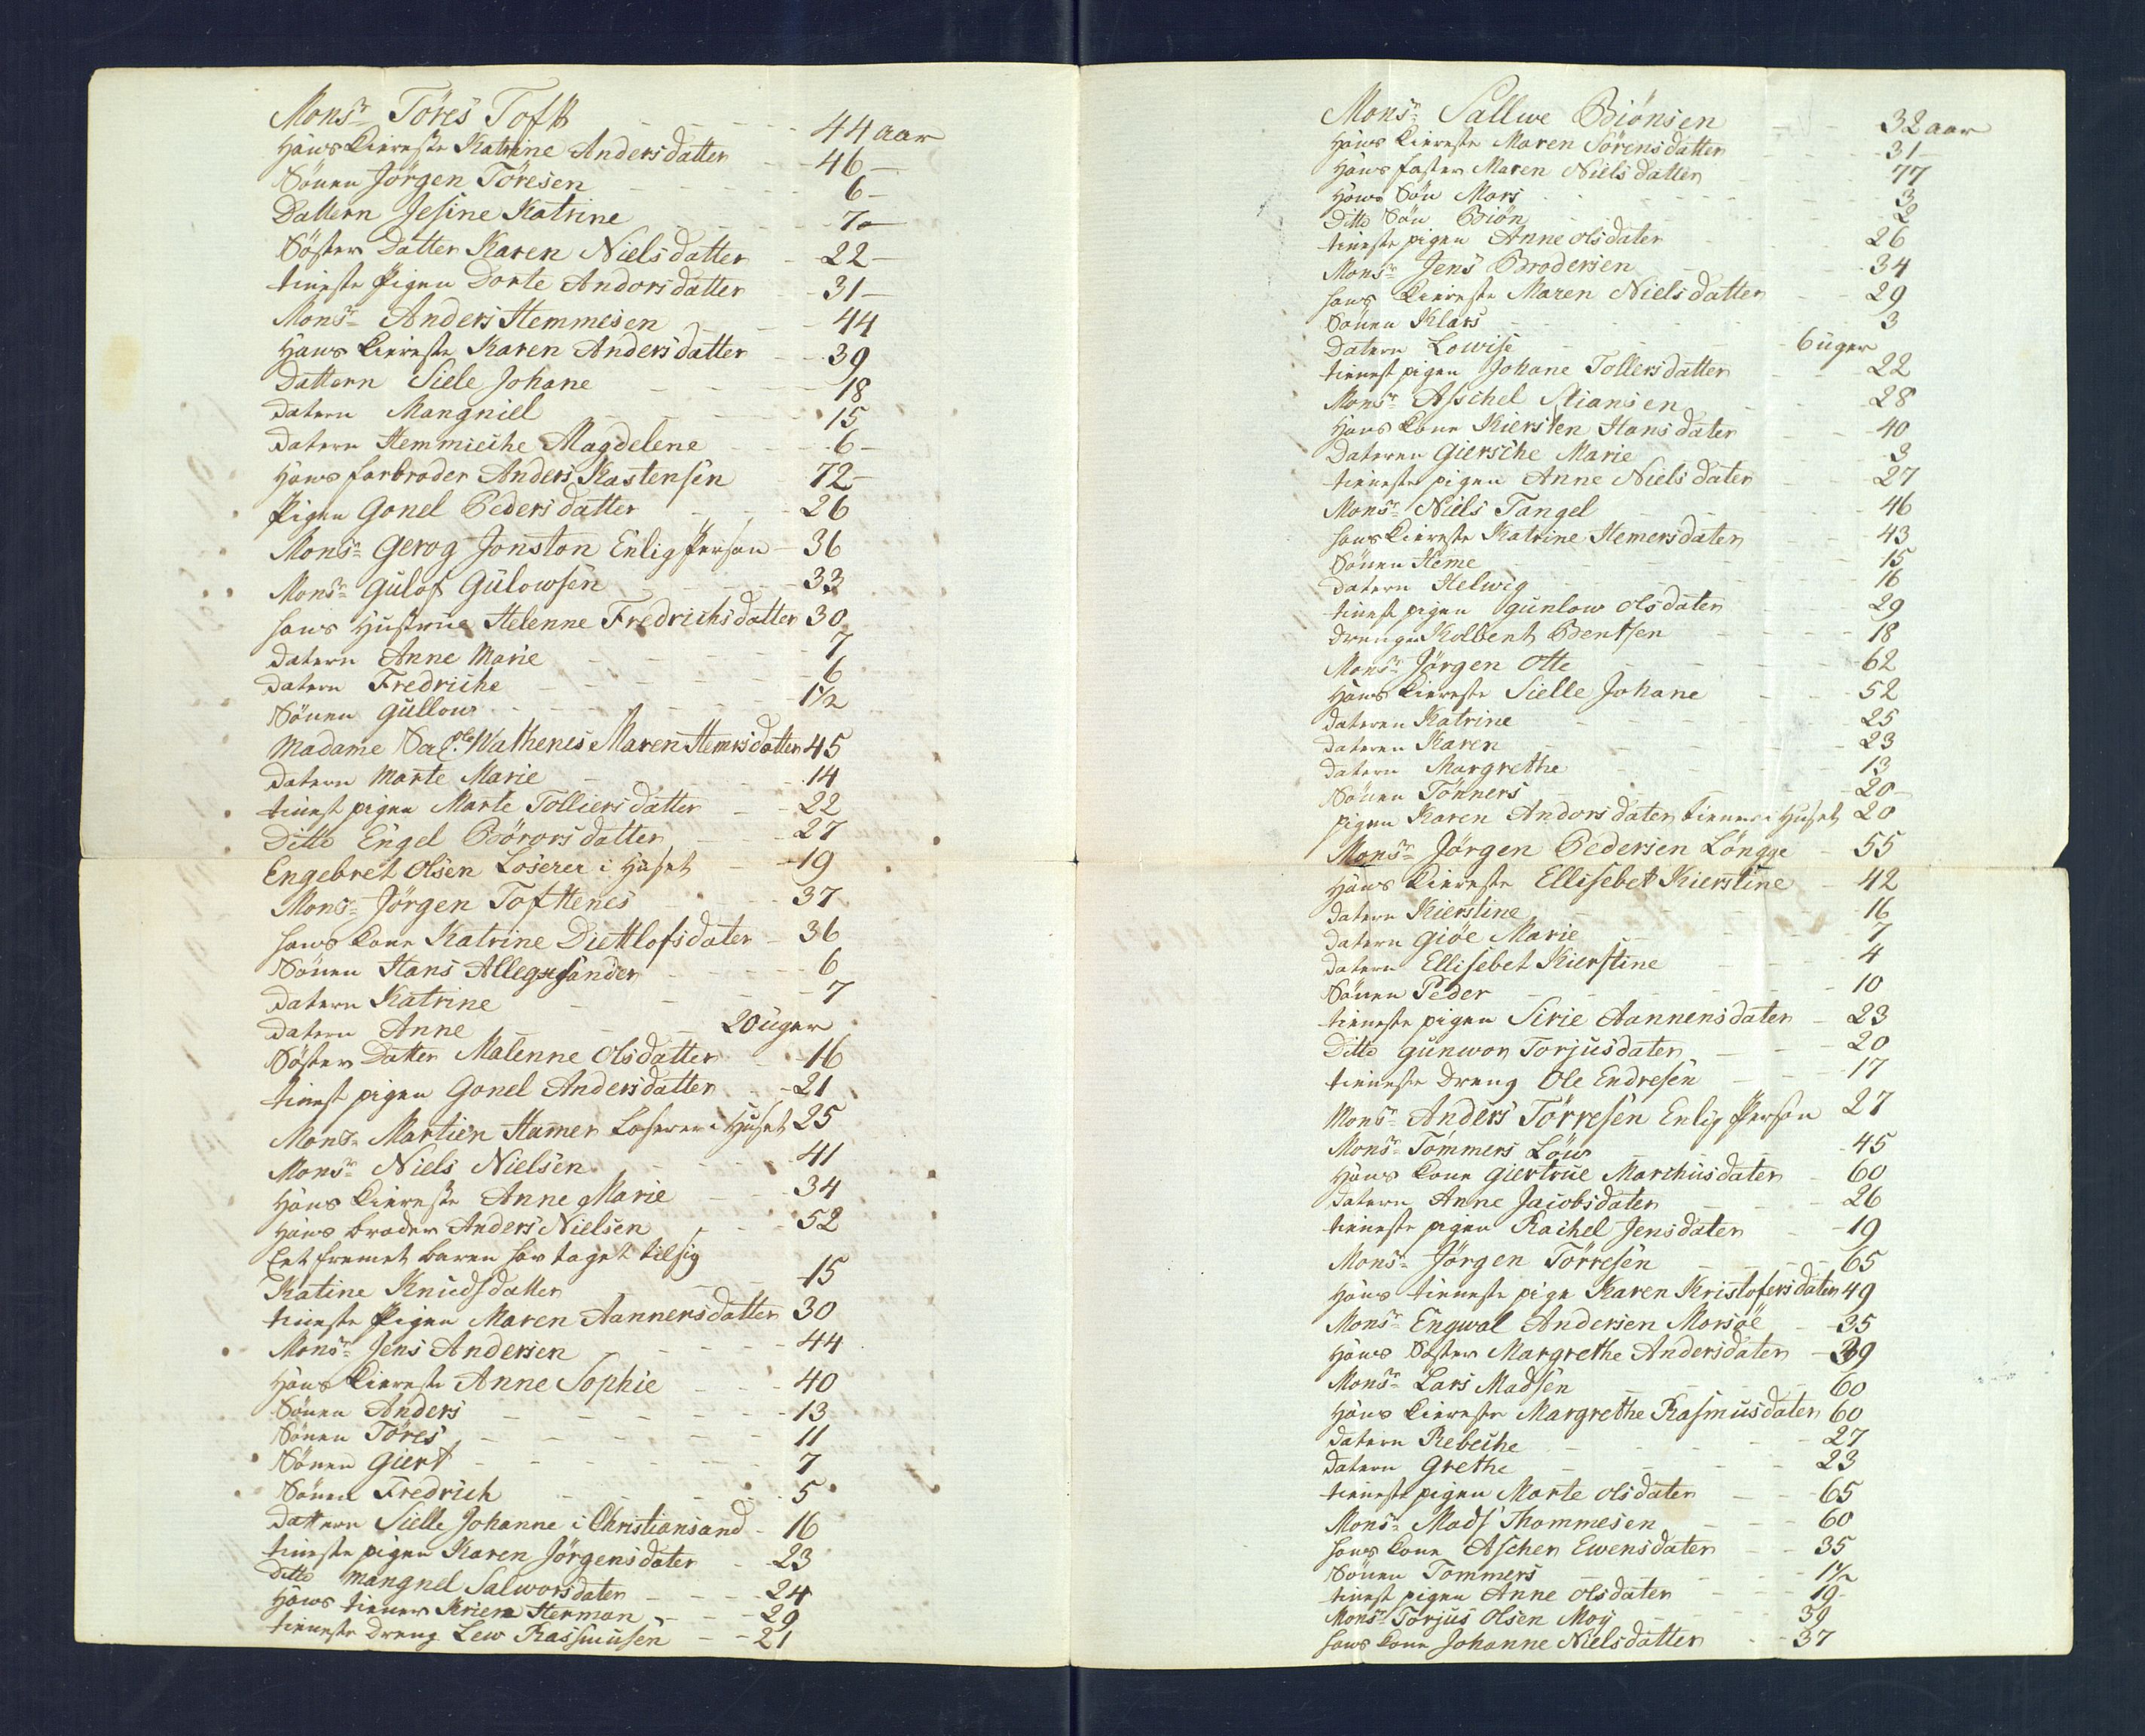 Monsr Töres Toft 44 aar
Hans Kiereste Katrine Andersdatter 46
Sönen Jörgen Töresen 6
Dattern Jesine Katrine 7
Söster Datter Karen Nielsdatter 22
tieneste Pigen Dorte Andorsdatter 31
Monsr Anders Hemmesen 44
Hans Kiereste Karen Andersdatter 39
Dattern Siele Johane 18
Datern Mangniel 15
Datern Hemmieche Magdelene 6
Hans farbroder Anders Kastensen 72
Pigen Gonel Pedersdatter 26
Monsr Gerog Jonston Enlig Person 36
Monsr Gulof Gulowsen 33
hans Hustrue Helenne Fredrichsdatter 30
Datern Anne Marie 7
Datern Fredriche 6
Sönen Gullow 1½
Madame Sal. Wathenes Maren Hemrsdatter 45
Datern Marte Marie 14
tienest pigen Marte Tolliersdatter 22
Ditto Engel Börorsdatter 27
Engebret Olsen Loserer i Huset 19
Monsr Jörgen Tofttenes 37
hans kone Katrine Diettlofsdater 36
Sönen Hans Allegsander 6
Datern Katrine 7
Datern Anne 20 uger
Söster Datter Malenne Olsdatter 16
tienest pigen Gonel Andersdatter 21
Monsr Martien Hamer Loserer i Huset 25
Monsr Niels Nielsen 41
Hans Kiereste Anne Marie 34
Hans broder Anders Nielsen 52
Eet fremet baren hav taget til sig
Katine Knudsdatter 15
tieneste Pigen Maren Aannensdatter 30
Monsr Jens Andersen 44
Hans Kiereste Anne Sophie 40
Sönen Anders 13
Sönen Töres 11
Sönen Giert 7
Sönen Fredrich 5
Dattern Sielle Johanne i Christiansand 16
tieneste pigen Karen Jörgensdater 23
Ditto Mangnel Salworsdater 24
Hans tiener Herman 29
tieneste Dreng Lew Rassmusen 21
Monsr Sallwe Biönsen 32 aar
Hans Kiereste Maren Sörensdatter 31
Hans faster Maren Nielsdatter 77
Hans Sön Mors 3
Ditto Sön Biön 2
tieneste pigen Anne Olsdater 26
Monsr Jens Brodersen 34
hans Kiereste Maren Nielsdatter 29
Sönen Klars 3
Datern Lowise 6 uger
tienest pigen Johane Tollersdatter 22
Monsr Asschel Stiansen 28
Hans kone Kiersten Hansdater 40
Dateren Giersche Marie 3
tieneste pigen Anne Nielsdater 27
Monsr Niels Tangel 46
hans Kiereste Katrine Hemersdater 43
Sönen Heme 15
Datern Helwig 16
tienest pigen Gunlow Olsdater 29
Drengen Kolbent Bentsen 18
Monsr Jörgen Otte 62
Hans Kiereste Sielle Johane 52
Dateren Katrine 25
Dateren Karen 23
Datern Margrethe 13
Sönen Tönners 20
pigen Karen Andorsdater tiener i Huset 20
Monsr Jörgen Pedersen Löngge 55
Hans Kiereste Ellisebet Kierstine 42
Datern Kierstine 16
Datern Giöe Marie 7
Datern Ellisebet Kierstine 4
Sönen Peder 10
tieneste pigen Sirie Aannensdater 23
Ditto Gunwor Torjusdater 20
tieneste Dreng Ole Endresen 17
Monsr Anders Törresen Enlig Person 27
Monsr Tömmers Löw 45
Hans kone Giertrue Marchusdater 60
Datern Anne Jacobsdater 26
tieneste pigen Rachel Jensdater 19
Monsr Jörgen Törresen 65
Hans tieneste pige Karen Kristofersdater 49
Monsr Engwal Andersen Morsöe 35
Hans Söster Margrethe Andersdater 39
Monsr Lars Madsen 60
Hans Kiereste Margrethe Rasmusdater 60
Datern Rebeche 27
Datern Grethe 23
tieneste pigen Marte Olsdater 65
Monsr Mads Thommesen 60
hans kone Ascher Ewensdater 35
Sönen Tommers 1½
tienest pigen Anne Olsdater 19
Monsr Torjus Olsen Moy 39
hans kone Johanne Nielsdatter 37